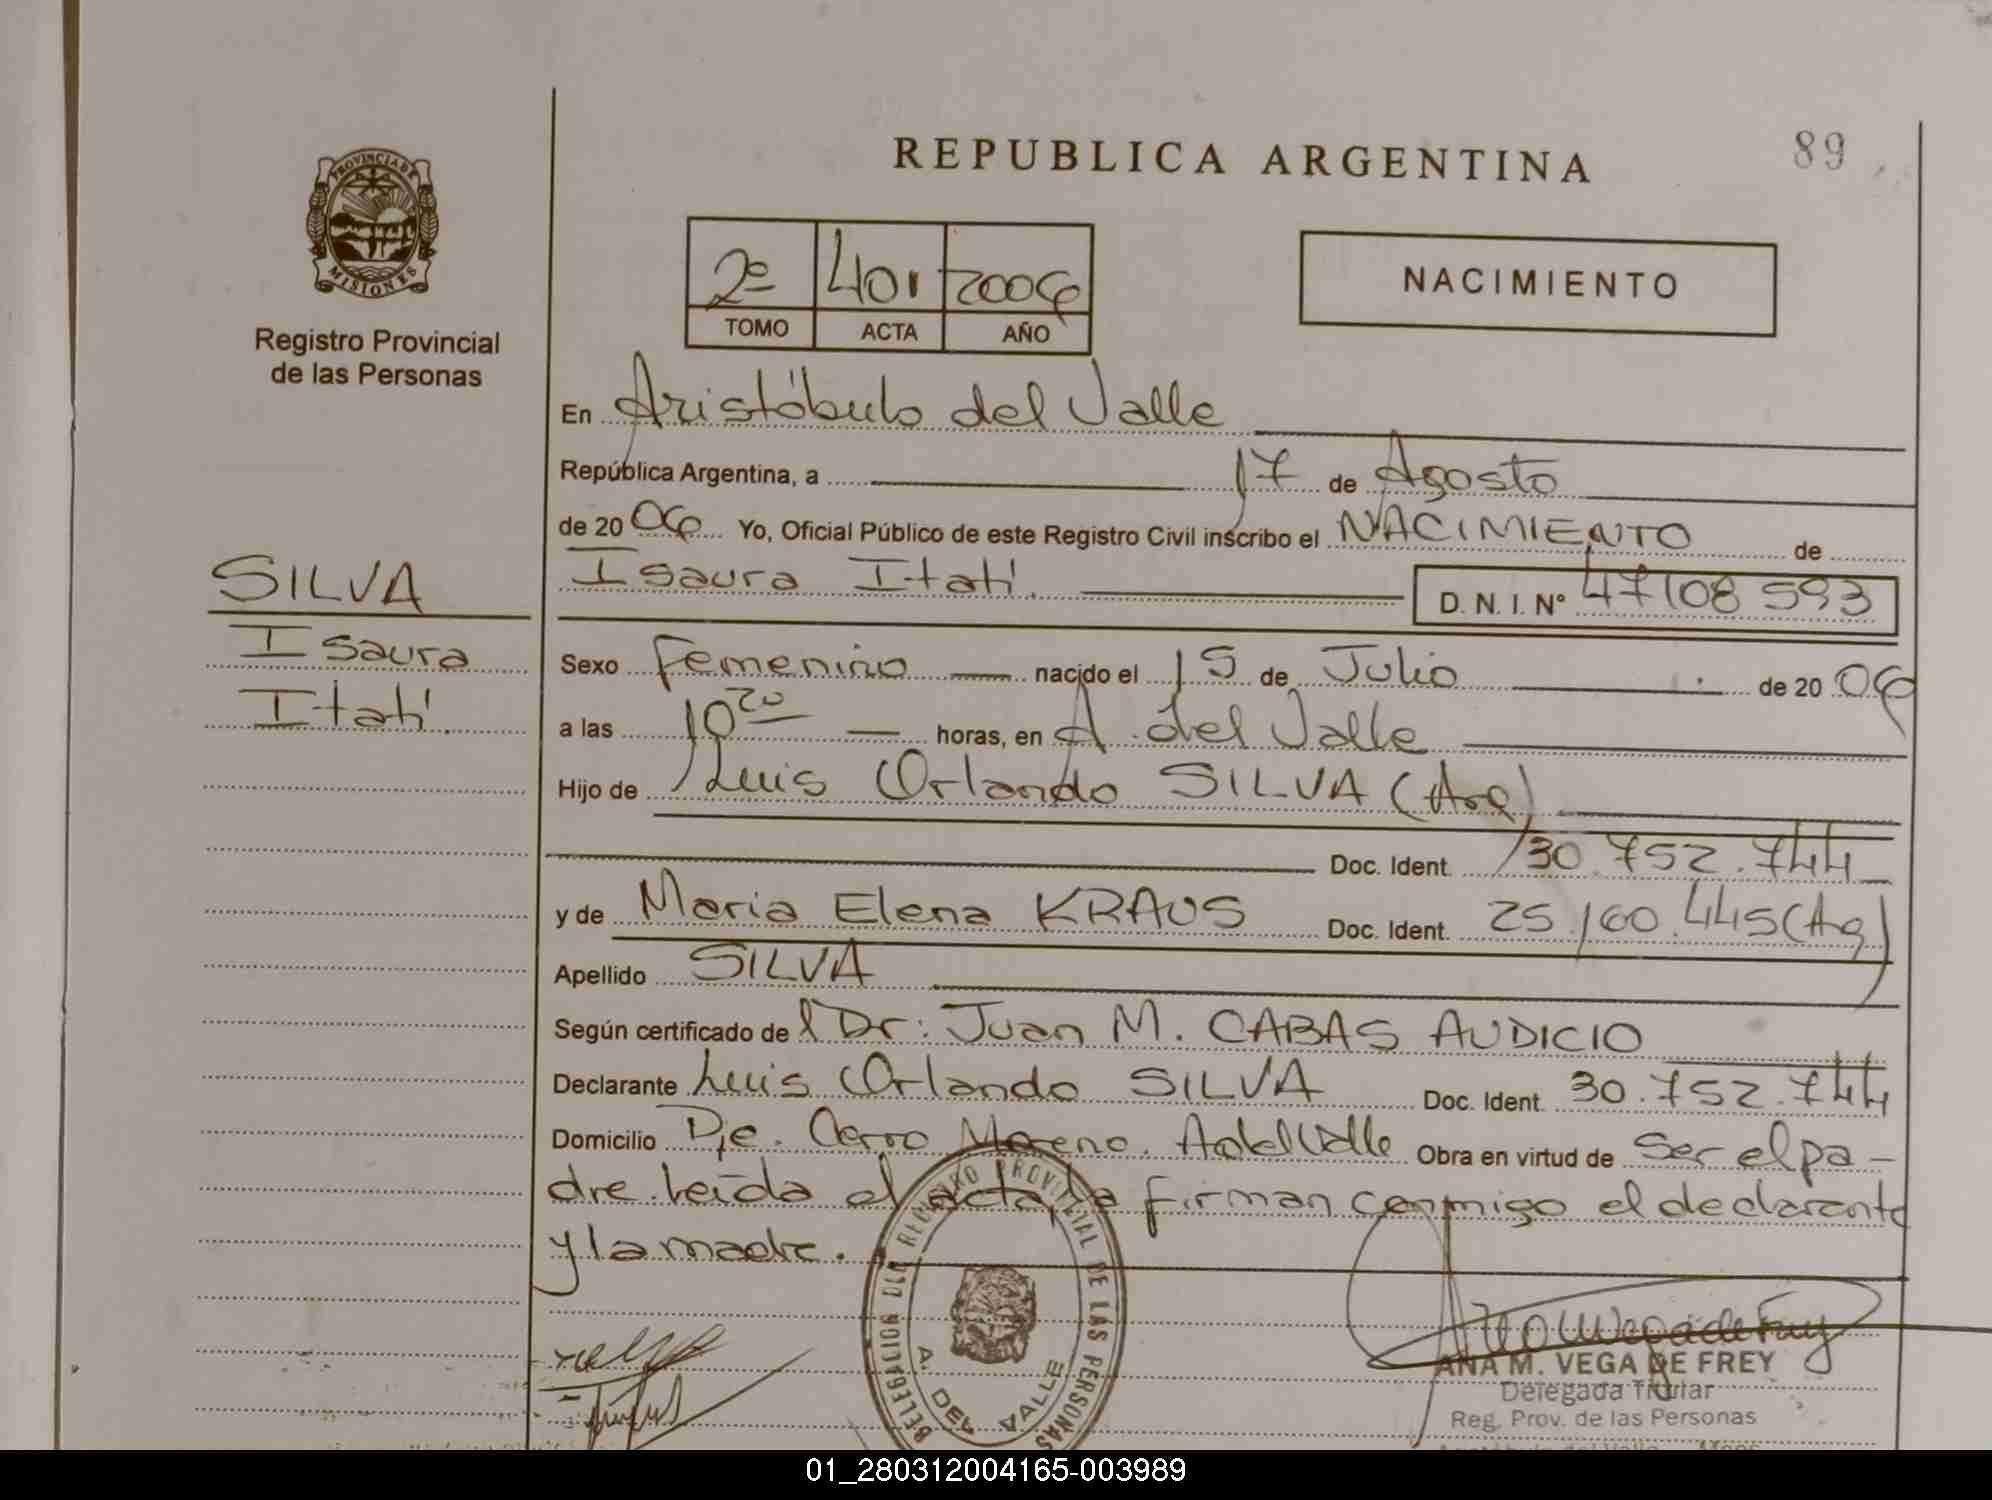 REPUBLICA ARGENTINA
89
PROVINCIA DE
MISIONES
Registro Provincial
de las Personas
2º 401 2006
TOMO ACTA AÑO
NACIMIENTO
En Aristóbulo del Valle
República Argentina, a 17 de Agosto
de 20 06 Yo, Oficial Público de este Registro Civil inscribo el NACIMIENTO de
SILVA
Isaura
Itatí
Isaura Itatí. D. N. I. Nº 47108 593
Sexo Femenino nacido el 15 de Julio de 20 06
a las 10 20 horas, en A. del Valle
Hijo de Luis Orlando SILVA (Arg)
Doc. Ident. 30.752.744
y de Maria Elena KRAUS Doc. Ident. 25.160.445 (Ag)
Apellido SILVA
Según certificado de l Dr: Juan M. CABAS AUDICIO
Declarante Luis Orlando SILVA Doc. Ident. 30.752.744
Domicilio Pje. Cerro Moreno. AdelValle Obra en virtud de ser el pa-
dre. Leída el acta, la firman conmigo el declarante
y la madre.
DELEGACION DEL REGISTRO PROVINCIAL DE LAS PERSONAS
A. DEL VALLE
Ana M Vega de Frey
ANA M. VEGA DE FREY
Delegada Titular
Reg. Prov. de las Personas
01_280312004165-003989